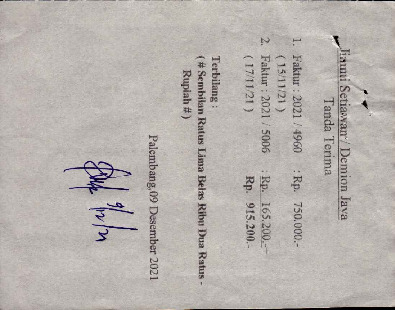 Jimmi Setiawan / Demion Java
Tanda Terima
1. Faktur : 2021 / 4960 : Rp. 750.000.-
( 15/11/21 )
2. Faktur : 2021 / 5006 : Rp. 165.200.-
( 17/11/21 ) Rp. 915.200.-
Terbilang :
( # Sembilan Ratus Lima Belas Ribu Dua Ratus -
Rupiah # )
Palembang,09 Desember 2021
9/12/21